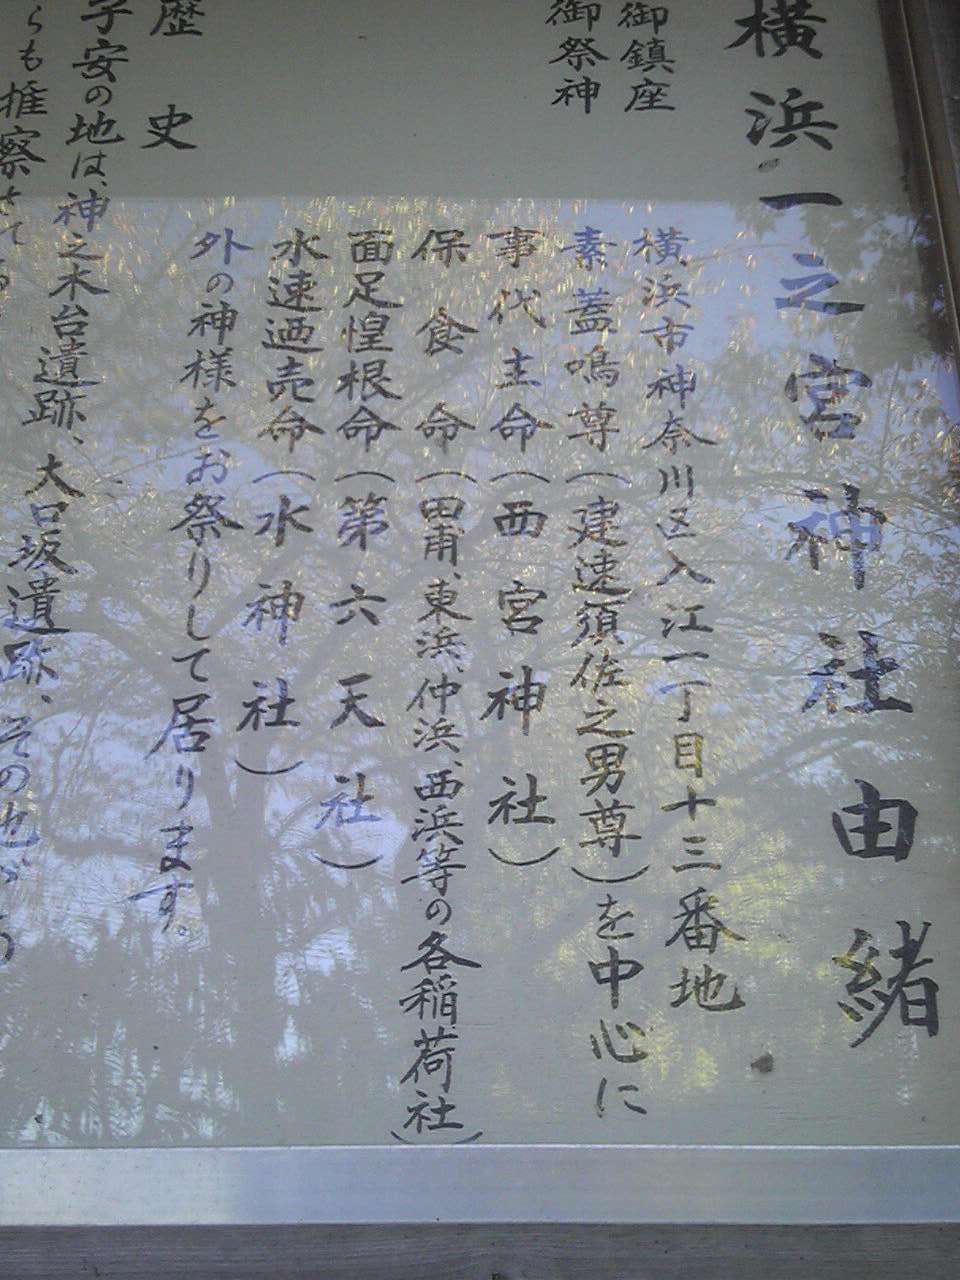 横浜一之宮神社由緒
御鎮座
横浜市神奈川区入江一丁目十三番地
御祭神
素盞嗚尊(建速須佐之男尊)を中心に
事代主命(西宮神社)
保食命(田甫、東浜、仲浜、西浜等の各稲荷社)
面足惶根命(第六天社)
水速迺売命(水神社)
外の神様をお祭りして居ります。
歴史
子安の地は、神之木台遺跡、大口坂遺跡、その他が
らも推察さて